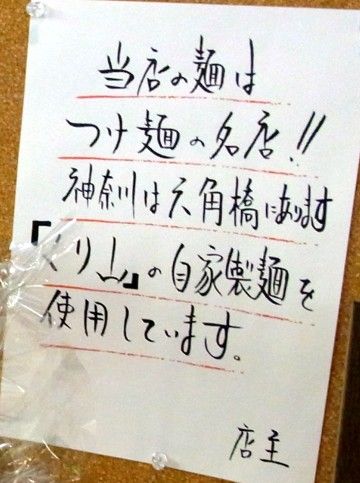 当店の麺は
つけ麺の名店!!
神奈川は六角橋にあります
『くり山』の自家製麺を
使用しています。
店主